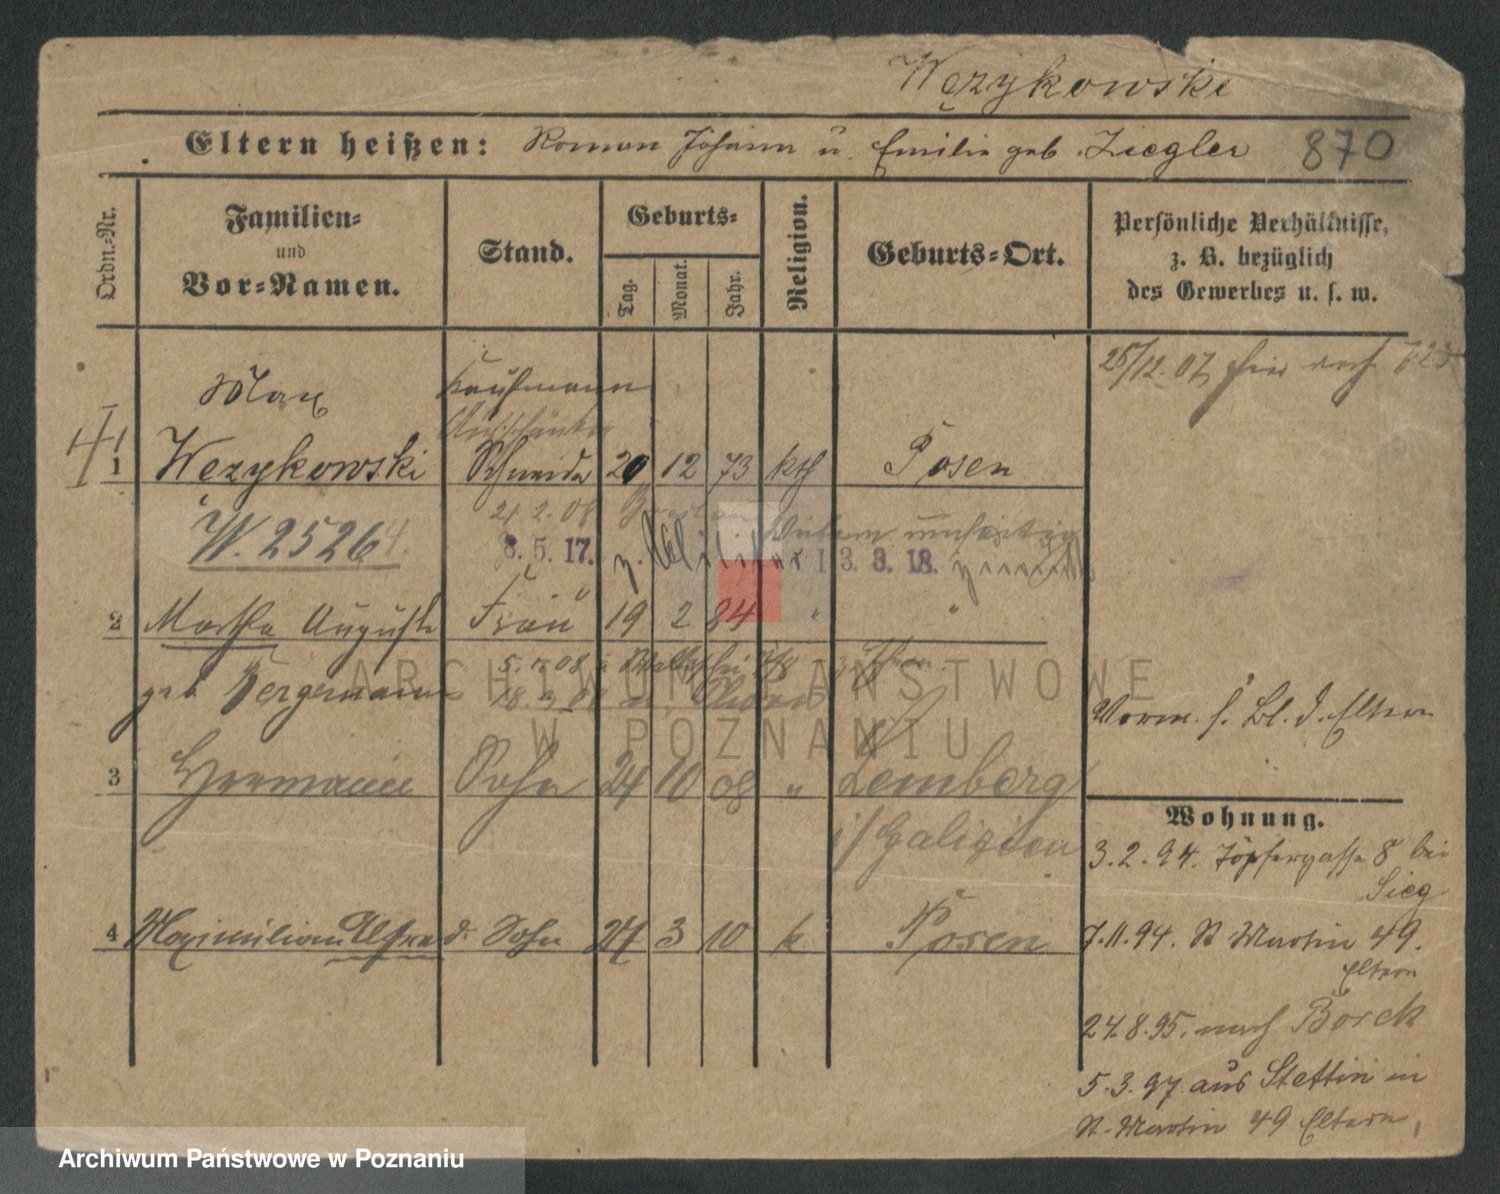 Węzykowski
Eltern heißen: Roman Johann u. Emilie geb. Ziegler 870
Ordn.-Nr.
Familien-
und
Vor-Namen.
Stand.
Geburts-
Tag.
Monat.
Jahr.
Religion.
Geburts-Ort.
Persönliche Verhältnisse,
z. B. bezüglich
des Gewerbes u. s. w.
25/12. 07
Max Kaufmann
1 Węzykowski Schneider 20 12 73 kth Posen
W. 2526
21 2. 08
8. 5. 17. z. Militär 13. 3. 18.
2 Martha Auguste Frau 19 2 84 " "
geb. Bergemann
Vorm. s. Bl. d. Eltern
3 Hermann Sohn 24 10 08 " Lemberg
i/Galizien
4 Maximilian Alfred. Sohn 24 3 10 k. Posen
Wohnung.
3. 2. 94. Töpfergasse 8 bei
Sieg
7. 11. 94. St Martin 49.
Eltern
24. 8. 95. nach Borek
5. 3. 97. aus Stettin in
St. Martin 49 Eltern,
ARCHIWUM PAŃSTWOWE
W POZNANIU
Archiwum Państwowe w Poznaniu